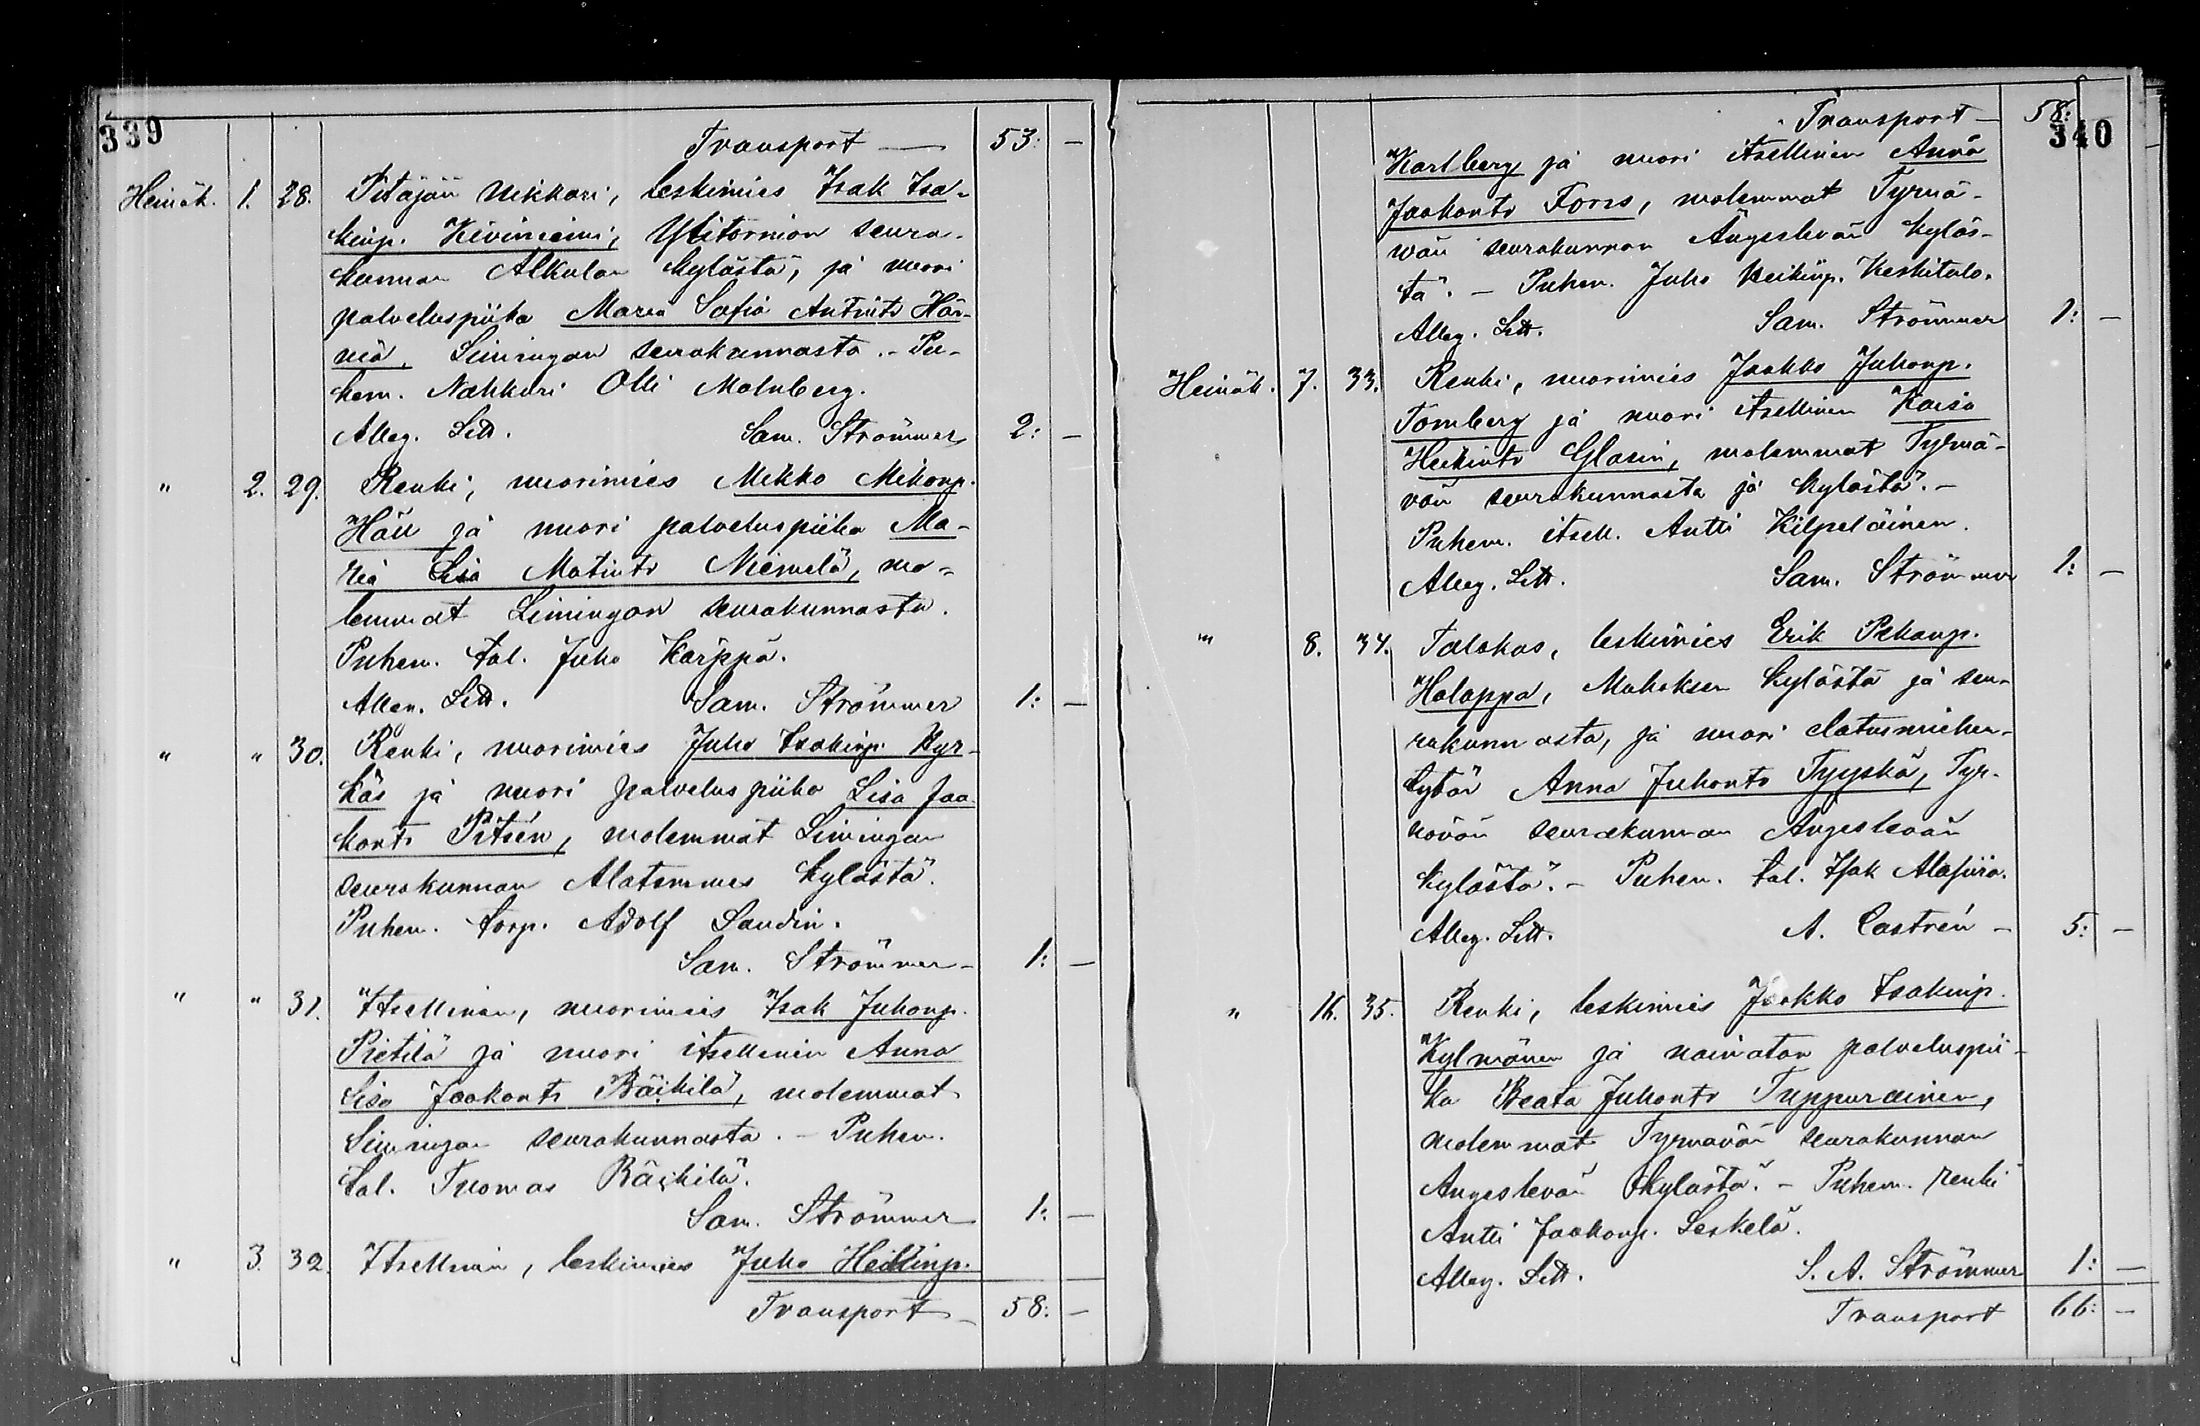 339
Transport — 53: —
Heinäk. 1. 28. Pitäjän nikkari, leskimies Isak Isa-
kinp. Kiviniemi, Ylitornion seura-
kunnan Alkulan kylästä, ja nuori
palveluspiika Maria Sofia Antint. Här-
mä, Limingan seurakunnasta. - Pu-
hem. Nahkuri Olli Malmberg.
Alleg. Litt. Sam. Strömmer 2: —
" 2. 29. Renki, nuorimies Mikko Mikonp.
Häll ja nuori palveluspiika Ma-
ria Lisa Matint. Niemelä, mo-
lemmat Limingan seurakunnasta.
Puhem. tal. Juho Kärppä.
Alleg. Litt. Sam. Strömmer 1: —
" " 30. Renki, nuorimies Juho Isakinp. Kyr-
käs ja nuori palveluspiika Lisa Jaa-
kont. Pitsén, molemmat Limingan
seurakunnan Alatemmes kylästä.
Puhem. torp. Adolf Sandin.
Sam. Strömmer 1: —
" " 31. Itsellinen, nuorimies Isak Juhonp.
Pietilä ja nuori itsellinen Anna
Lisa Jaakont. Räikilä, molemmat
Limingan seurakunnasta. - Puhem.
tal. Tuomas Räikilä.
Sam. Strömmer 1: —
" 3. 32. Itsellinen, leskimies Juho Heikinp.
Transport 58: —
340
Transport — 58:
Karlberg ja nuori itsellinen Anna
Jaakont. Forss, molemmat Tyrnä-
wän seurakunnan Ängeslevän kyläs-
tä. - Puhem. Juho Heikinp. Keskitalo.
Alleg. Litt. Sam. Strömmer 1: —
Heinäk. 7. 33. Renki, nuorimies Jaakko Juhonp.
Tomberg ja nuori itsellinen Kaisa
Heikint. Glasin, molemmat Tyrnä-
vän seurakunnasta ja kylästä. -
Puhem. itsell. Antti Kilpeläinen.
Alleg. Litt. Sam. Strömmer 1: —
" 8. 34. Talokas, leskimies Erik Pekanp.
Halappa, Muhoksen kylästä ja seu-
rakunnasta, ja nuori elatusmiehen
tytär Anna Juhont. Tyyskä, Tyr-
növän seurakunnan Angeslevän
kylästä. - Puhem. tal. Isak Alapiira.
Alleg. Litt. A. Castrén — 5: —
" 16. 35. Renki, leskimies Jaakko Isakinp.
Kylmänen ja naimaton palveluspii-
ka Beata Juhont. Tuppurainen,
molemmat Tyrnävän seurakunnan
Angeslevän kylästä. - Puhem. renki
Antti Jaakonp. Leskelä.
Alleg. Litt. S. A. Strömmer 1: —
Transport 66: —